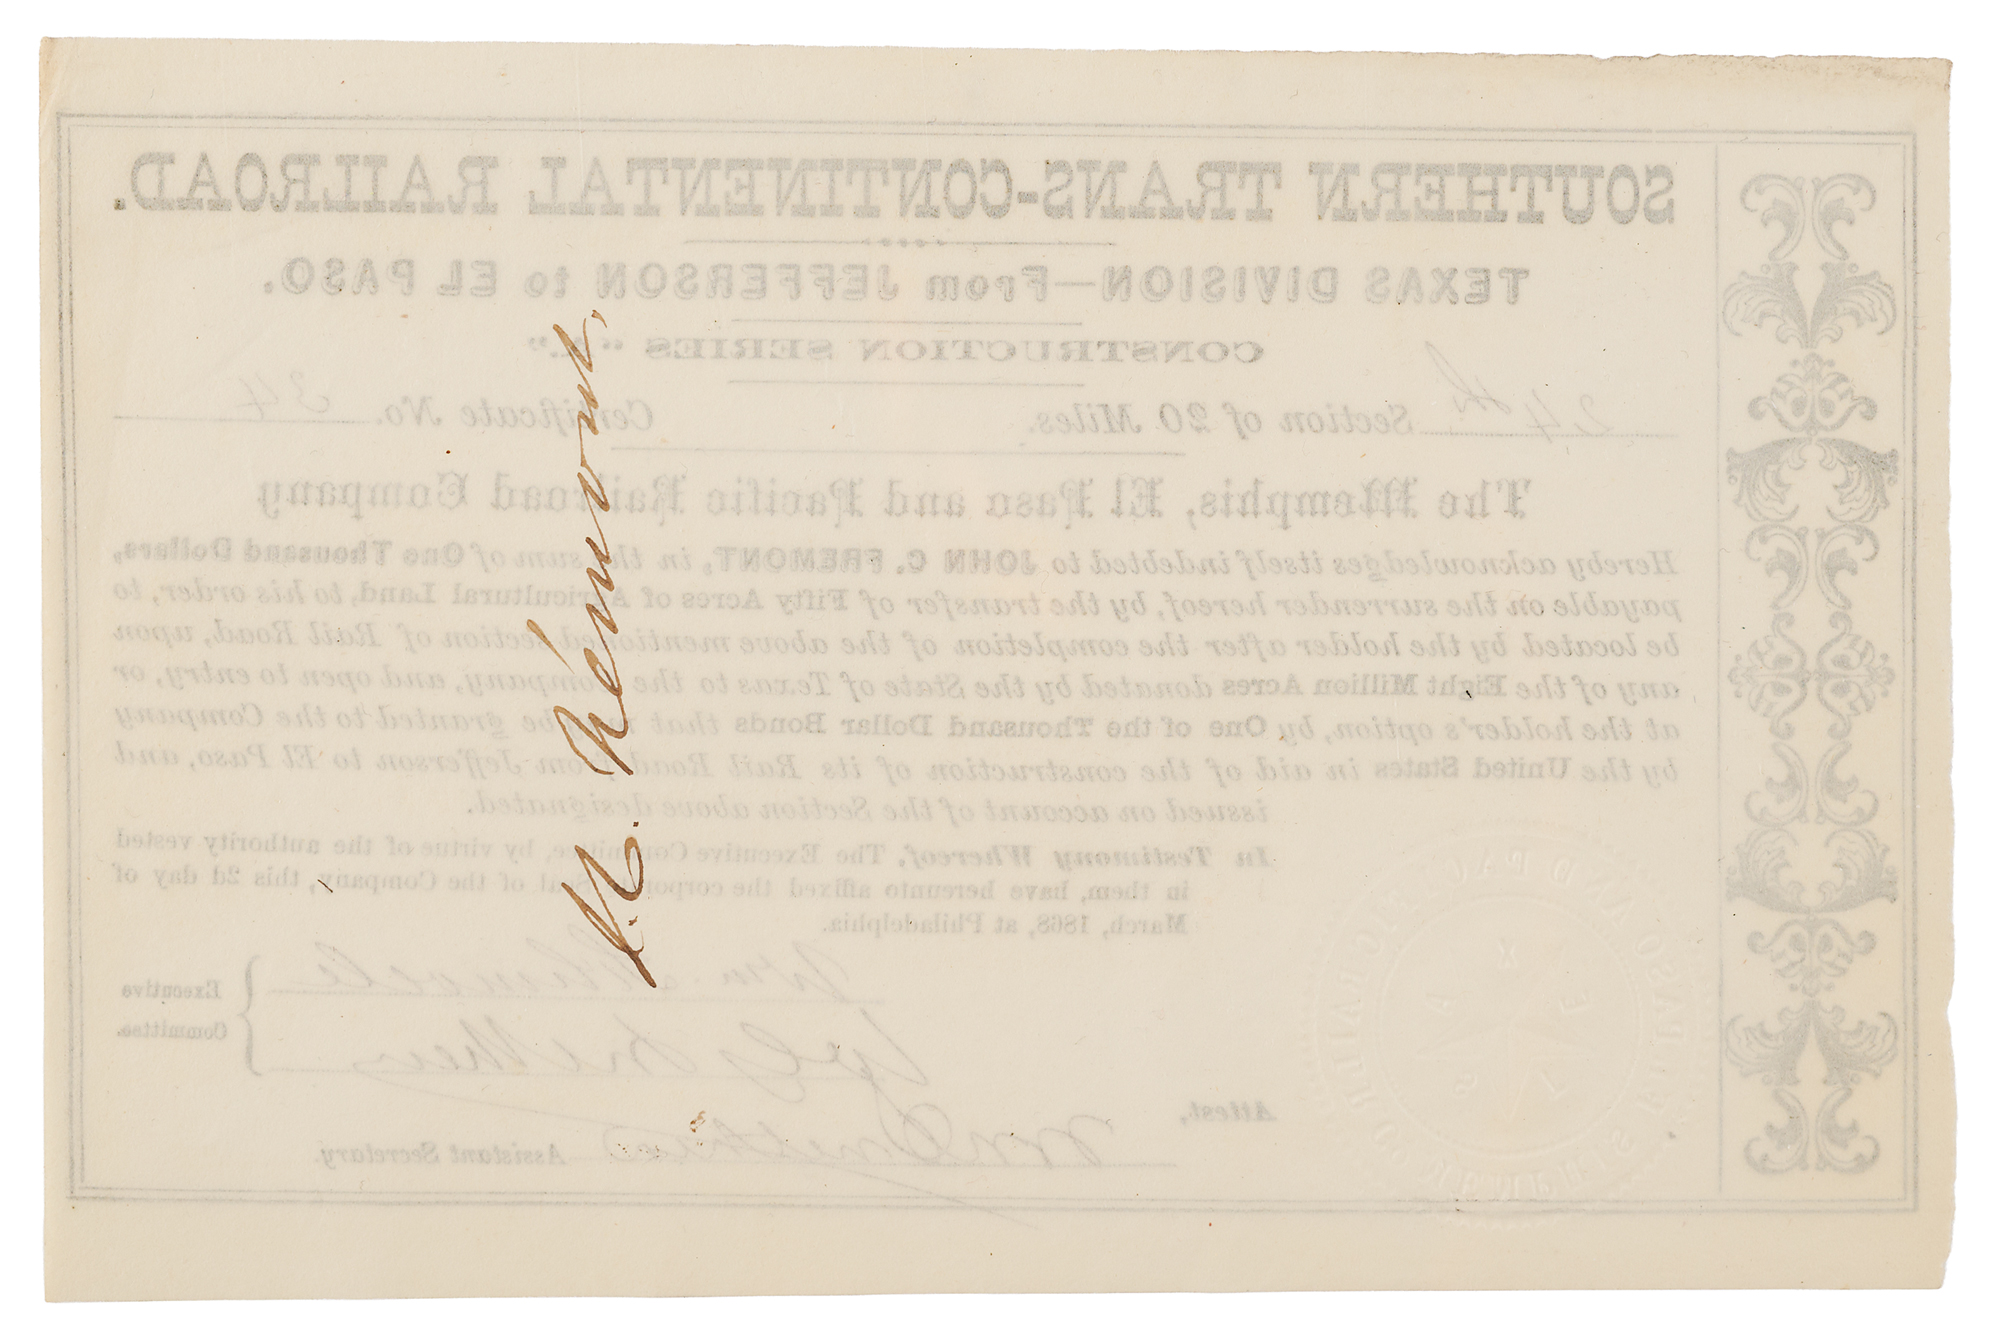 SOUTHERN TRANS-CONTINENTAL RAILROAD.
TEXAS DIVISION—From JEFFERSON to EL PASO.
CONSTRUCTION SERIES "A."
24th Section of 20 Miles. Certificate No. 34
The Memphis, El Paso and Pacific Railroad Company
Hereby acknowledges itself indebted to JOHN C. FREMONT, in the sum of One Thousand Dollars,
payable on the surrender hereof, by the transfer of Fifty Acres of Agricultural Land, to his order, to
be located by the holder after the completion of the above mentioned section of Rail Road, upon
any of the Eight Million Acres donated by the State of Texas to the Company, and open to entry, or
at the holder's option, by One of the Thousand Dollar Bonds that may be granted to the Company
by the United States in aid of the construction of its Rail Road from Jefferson to El Paso, and
issued on account of the Section above designated.
In Testimony Whereof, The Executive Committee, by virtue of the authority vested
in them, have hereunto affixed the corporate Seal of the Company, this 2d day of
March, 1868, at Philadelphia.
Executive
Committee.
Attest,
Assistant Secretary.
TEXAS
J. C. Frémont.